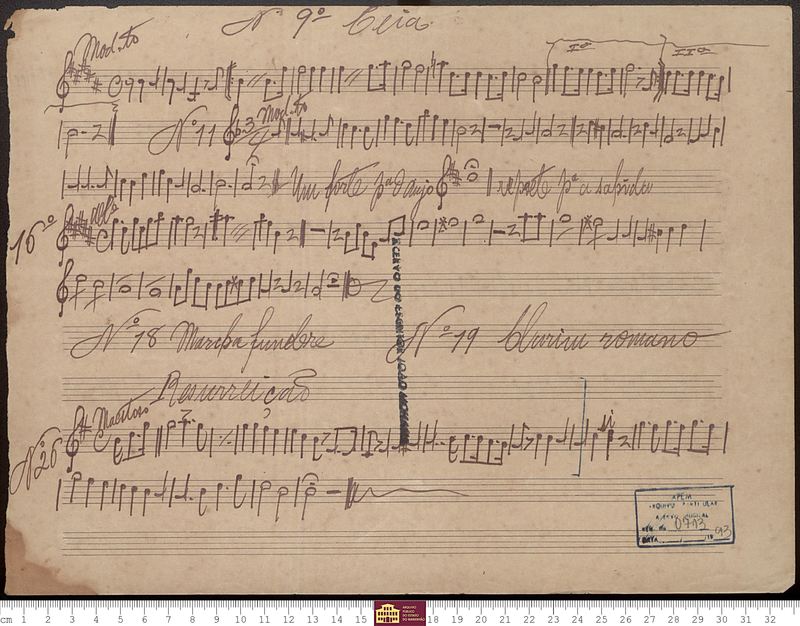 Nº 9º Ceia.
Mod.to
Iª IIª
Nº 11 Mod.to
Um forte pª o anjo repete pª a
16º
Nº 18 Marcha funebre Nº 19 Clarim romano
Resurreição
Nº 26 Maestoso
ACERVO DO JOÃO MOHANA
APEM
ARQUIVO PARTICULAR
0793
/19 93
ARQUIVO
PÚBLICO
DO ESTADO
DO MARANHÃO
cm 1 2 3 4 5 6 7 8 9 10 11 12 13 14 15 18 19 20 21 22 23 24 25 26 27 28 29 30 31 32